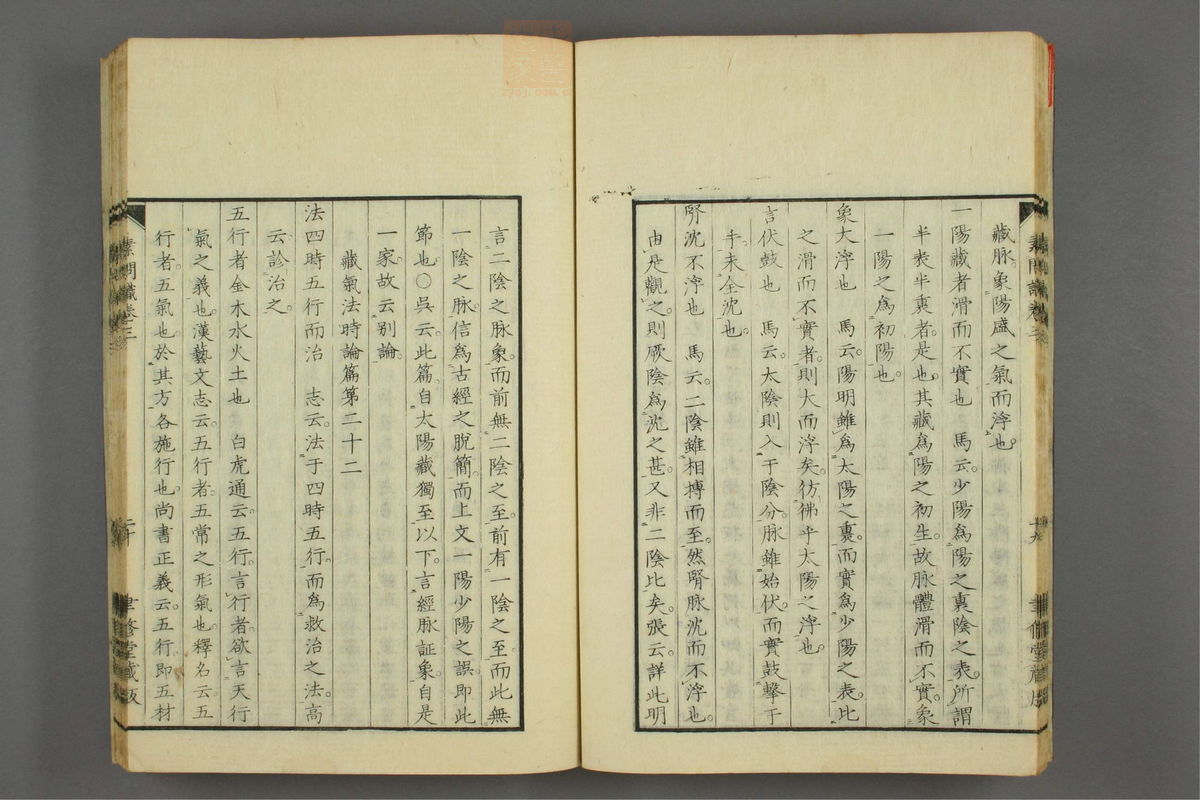 藏脉。象陽盛之氣而浮也。
一陽藏者滑而不實也　馬云。少陽爲陽之裏陰之表。所謂
半表半裏者。是也。其藏爲陽之初生。故脉體滑而不實。象
一陽之爲初陽也。
象大浮也　馬云。陽明雖爲太陽之裏。而實爲少陽之表。比
之滑而不實者。則大而浮矣。彷彿乎太陽之浮也。
言伏鼓也　馬云。太陰則入于陰分。脉雖始伏。而實鼓擊于
手。未全沈也。
腎沈不浮也　馬云。二陰雖相搏而至。然腎脉沈而不浮也。
由是觀之。則厥陰爲沈之甚。又非二陰比矣。張云。詳此明
言二陰之脉象。而前無二陰之至。前有一陰之至。而此無
一陰之脉。信爲古經之脫簡。而上文一陽少陽之誤。即此
節也。○吳云。此篇。自太陽藏獨至以下。言經脉証象。自是
一家。故云别論。
藏氣法時論篇第二十二
法四時五行而治　志云。法于四時五行。而爲救治之法。高
云。診治之。
五行者金木水火土也　白虎通云。五行。言行者。欲言天行
氣之義也。漢藝文志云。五行者。五常之形氣也。釋名云。五
行者。五氣也。於其方各施行也。尚書正義云。五行。即五材
素問識卷三
二十
聿修堂藏版